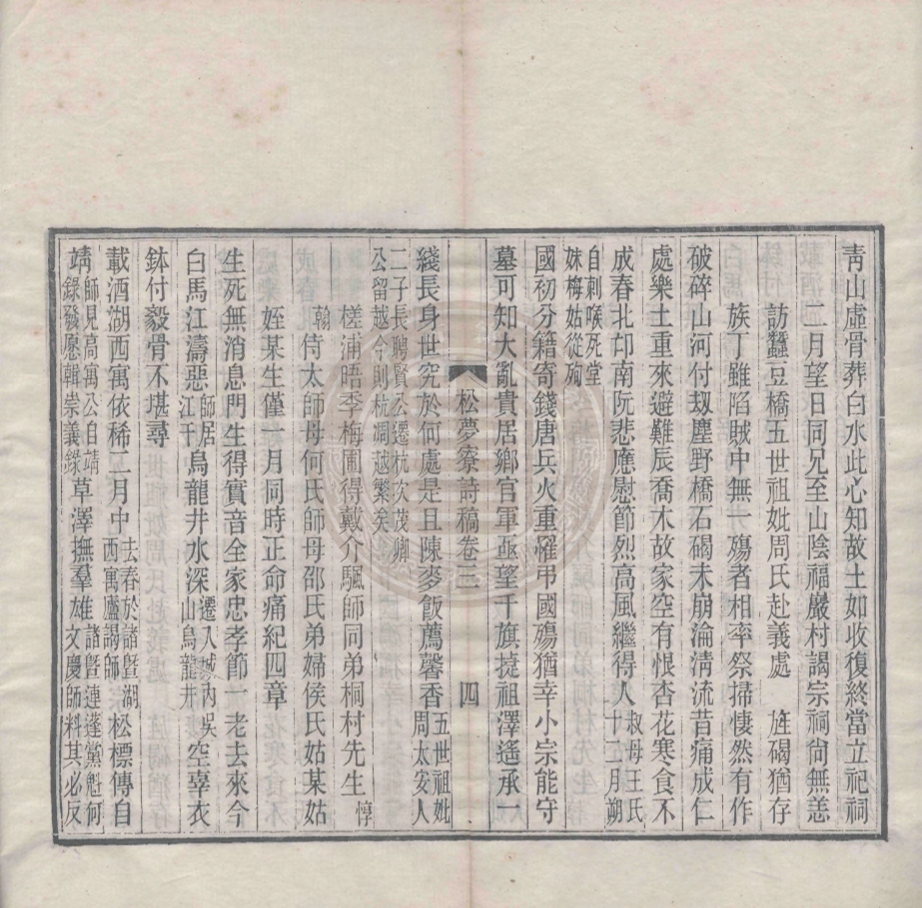 青山虛骨葬白水此心知故土如收復終當立祀祠
二月望日同兄至山陰福嚴村謁宗祠尙無恙
訪蠶豆橋五世祖妣周氏赴義處　旌碣猶存
族丁雖陷賊中無一殤者相率祭掃悽然有作
破碎山河付刼塵野橋石碣未崩淪淸流昔痛成仁
處樂土重來避難辰喬木故家空有恨杏花寒食不
成春北邙南阮悲應慰節烈高風繼得人叔母王氏十二月朔
自刺喉死堂妹梅姑從殉
國初分籍寄錢唐兵火重罹弔國殤猶幸小宗能守
墓可知大亂貴居鄉官軍亟望千旗㨗祖澤遙承一
松夢寮詩稿卷三　四
綫長身世究於何處是且陳麥飯薦馨香五世祖妣周太安人
二子長聘賢公遷杭次茂卿公留越今則杭凋越繁矣
槎浦晤季梅圃得戴介颿師同弟桐村先生惇
翰侍太師母何氏師母邵氏弟婦侯氏姑某姑
姪某生僅一月同時正命痛紀四章
生死無消息門生得實音全家忠孝節一老去來今
白馬江濤惡師居江干烏龍井水深遷入城內吳山烏龍井空辜衣
鉢付毅骨不堪尋
載酒湖西寓依稀二月中去春於諸曁湖西寓廬謁師松標傳自
靖師見高寓公自靖錄發愿輯崇義錄草澤撫羣雄諸曁連蓬黨魁何文慶師料其必反